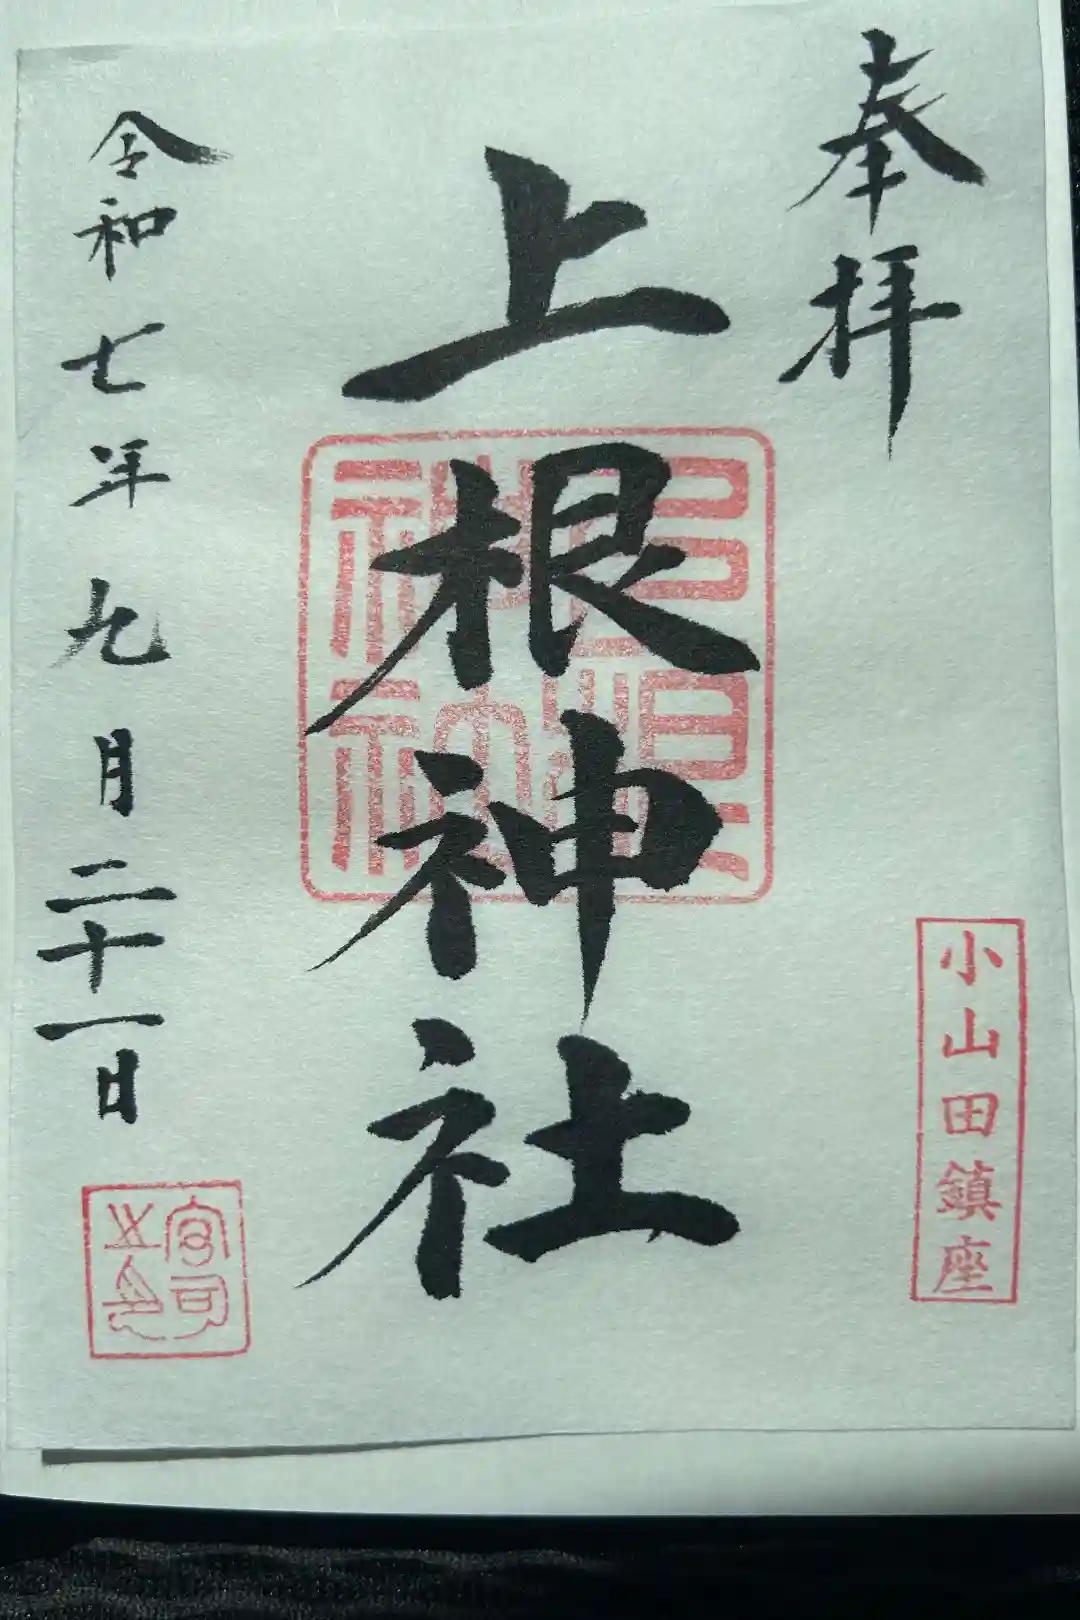 奉拝
小山田鎮座
上根神社
令和七年九月二十一日
宮司之印